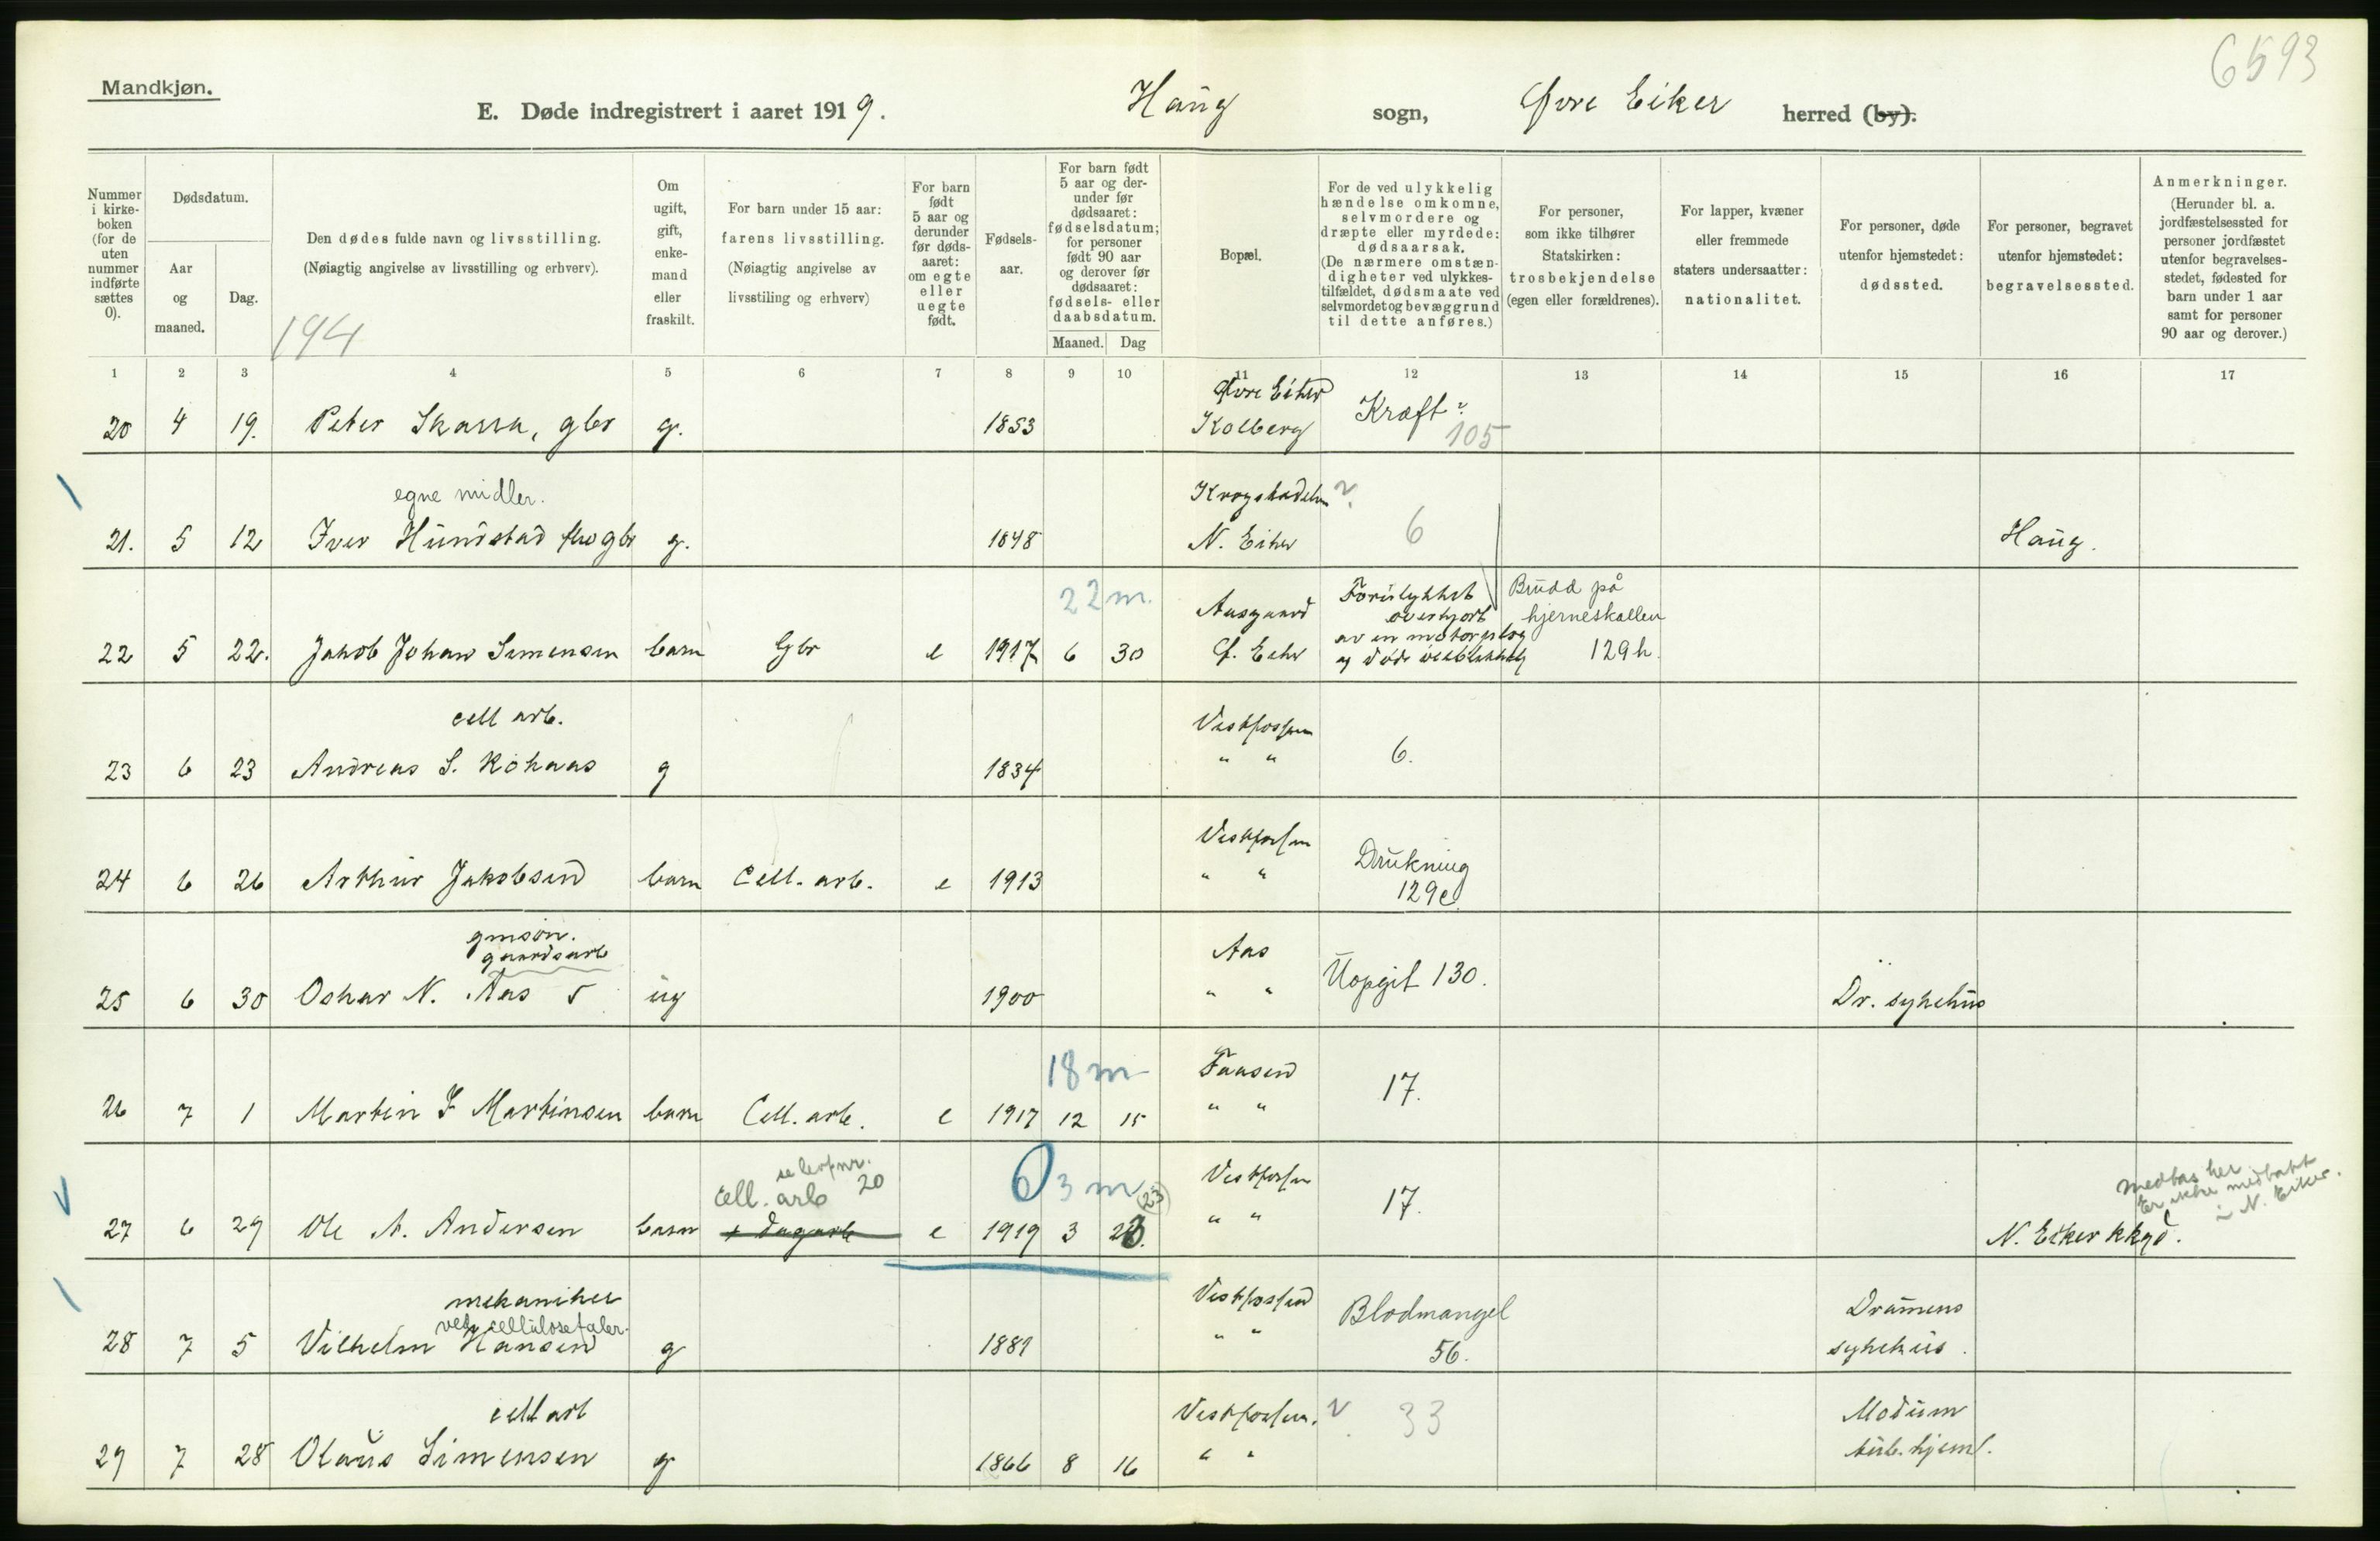 6593
Mandkjøn.
E. Døde indregistrert i aaret 1919. Haug sogn, Øvre Eiker herred (by).
Nummer i kirkeboken (for de uten nummer indførte sættes 0).
Dødsdatum.
Aar og maaned.
Dag.
Den dødes fulde navn og livsstilling.
(Nøiagtig angivelse av livsstilling og erhverv).
194
Om ugift, gift, enkemand eller fraskilt.
For barn under 15 aar:
farens livsstilling.
(Nøiagtig angivelse av livsstiling og erhverv)
For barn født 5 aar og derunder før dødsaaret: om egte eller uegte født.
Fødselsaar.
For barn født 5 aar og derunder før dødsaaret: fødselsdatum; for personer født 90 aar og derover før dødsaaret: fødsels- eller daabsdatum.
Maaned. Dag
Bopæl.
For de ved ulykkelig hændelse omkomne, selvmordere og dræpte eller myrdede: dødsaarsak.
(De nærmere omstændigheter ved ulykkestilfældet, dødsmaate ved selvmordet og bevæggrund til dette anføres.)
For personer, som ikke tilhører Statskirken: trosbekjendelse (egen eller forældrenes).
For lapper, kvæner eller fremmede staters undersaatter: nationalitet.
For personer, døde utenfor hjemstedet: dødssted.
For personer, begravet utenfor hjemstedet: begravelsessted.
Anmerkninger.
(Herunder bl. a. jordfæstelsessted for personer jordfæstet utenfor begravelsesstedet, fødested for barn under 1 aar samt for personer 90 aar og derover.)
1 2 3 4 5 6 7 8 9 10 11 12 13 14 15 16 17
Øvre Eiker
20 4 19. Peter Skarra, gbr g. 1853 Kolberg Kræft 105
egne midler. Krogstadelven
21. 5 12 Iver Hundstad gbr g. 1848 N. Eiker 6 Haug.
22 m. Aasgaard Forulykket overkjørt av en motorplog Brudd på hjerneskallen
22 5 22. Jakob Johan Simensen barn Gbr e 1917 6 30 Ø. Eiker og døde 129h.
cell arb. Vestfossen
23 6 23 Andreas S. Kohaas g 1834 " " 6.
Vestfossen
24 6 26 Arthur Jakobsen barn Cell. arb. e 1913 " " Drukning 129e
gmsøn.
gaardsarb Aas
25 6 30 Oskar N. Aas s ug 1900 " " Uopgit 130. Dr. sykehus
18 m Faasen
26 7 1 Martin F Martinsen barn Cell. arb. e 1917 12 15 " " 17.
se levf nr. 20
cell. arb 0 3 m (23) Vestfossen medtas her
Er ikke medtatt i N. Eiker.
27 6 29 Ole A. Andersen barn + dagarb e 1919 3 23. " " 17. N. Eiker kkgd.
mekaniker
ved cellulosefabr. Vestfossen Blodmangel Drammens
28 7 5 Vilhelm Hansen g 1881 " " 56. sykehus.
cell arb Vestfossen. Modum
29 7 28 Olaus Simensen g 1866 8 16 " " 33 tub. hjem.